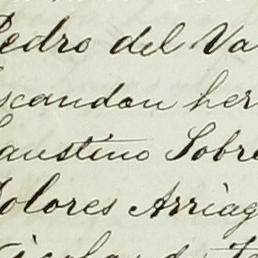 Pedro del Va
scandon her
Faustino Sobre
Dolores Arriàg